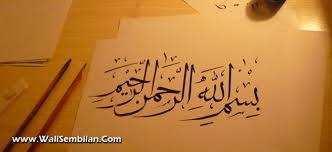 بِسْمِ اللهِ الرَّحْمٰنِ الرَّحِيْمِ
www.WaliSembilan.Com